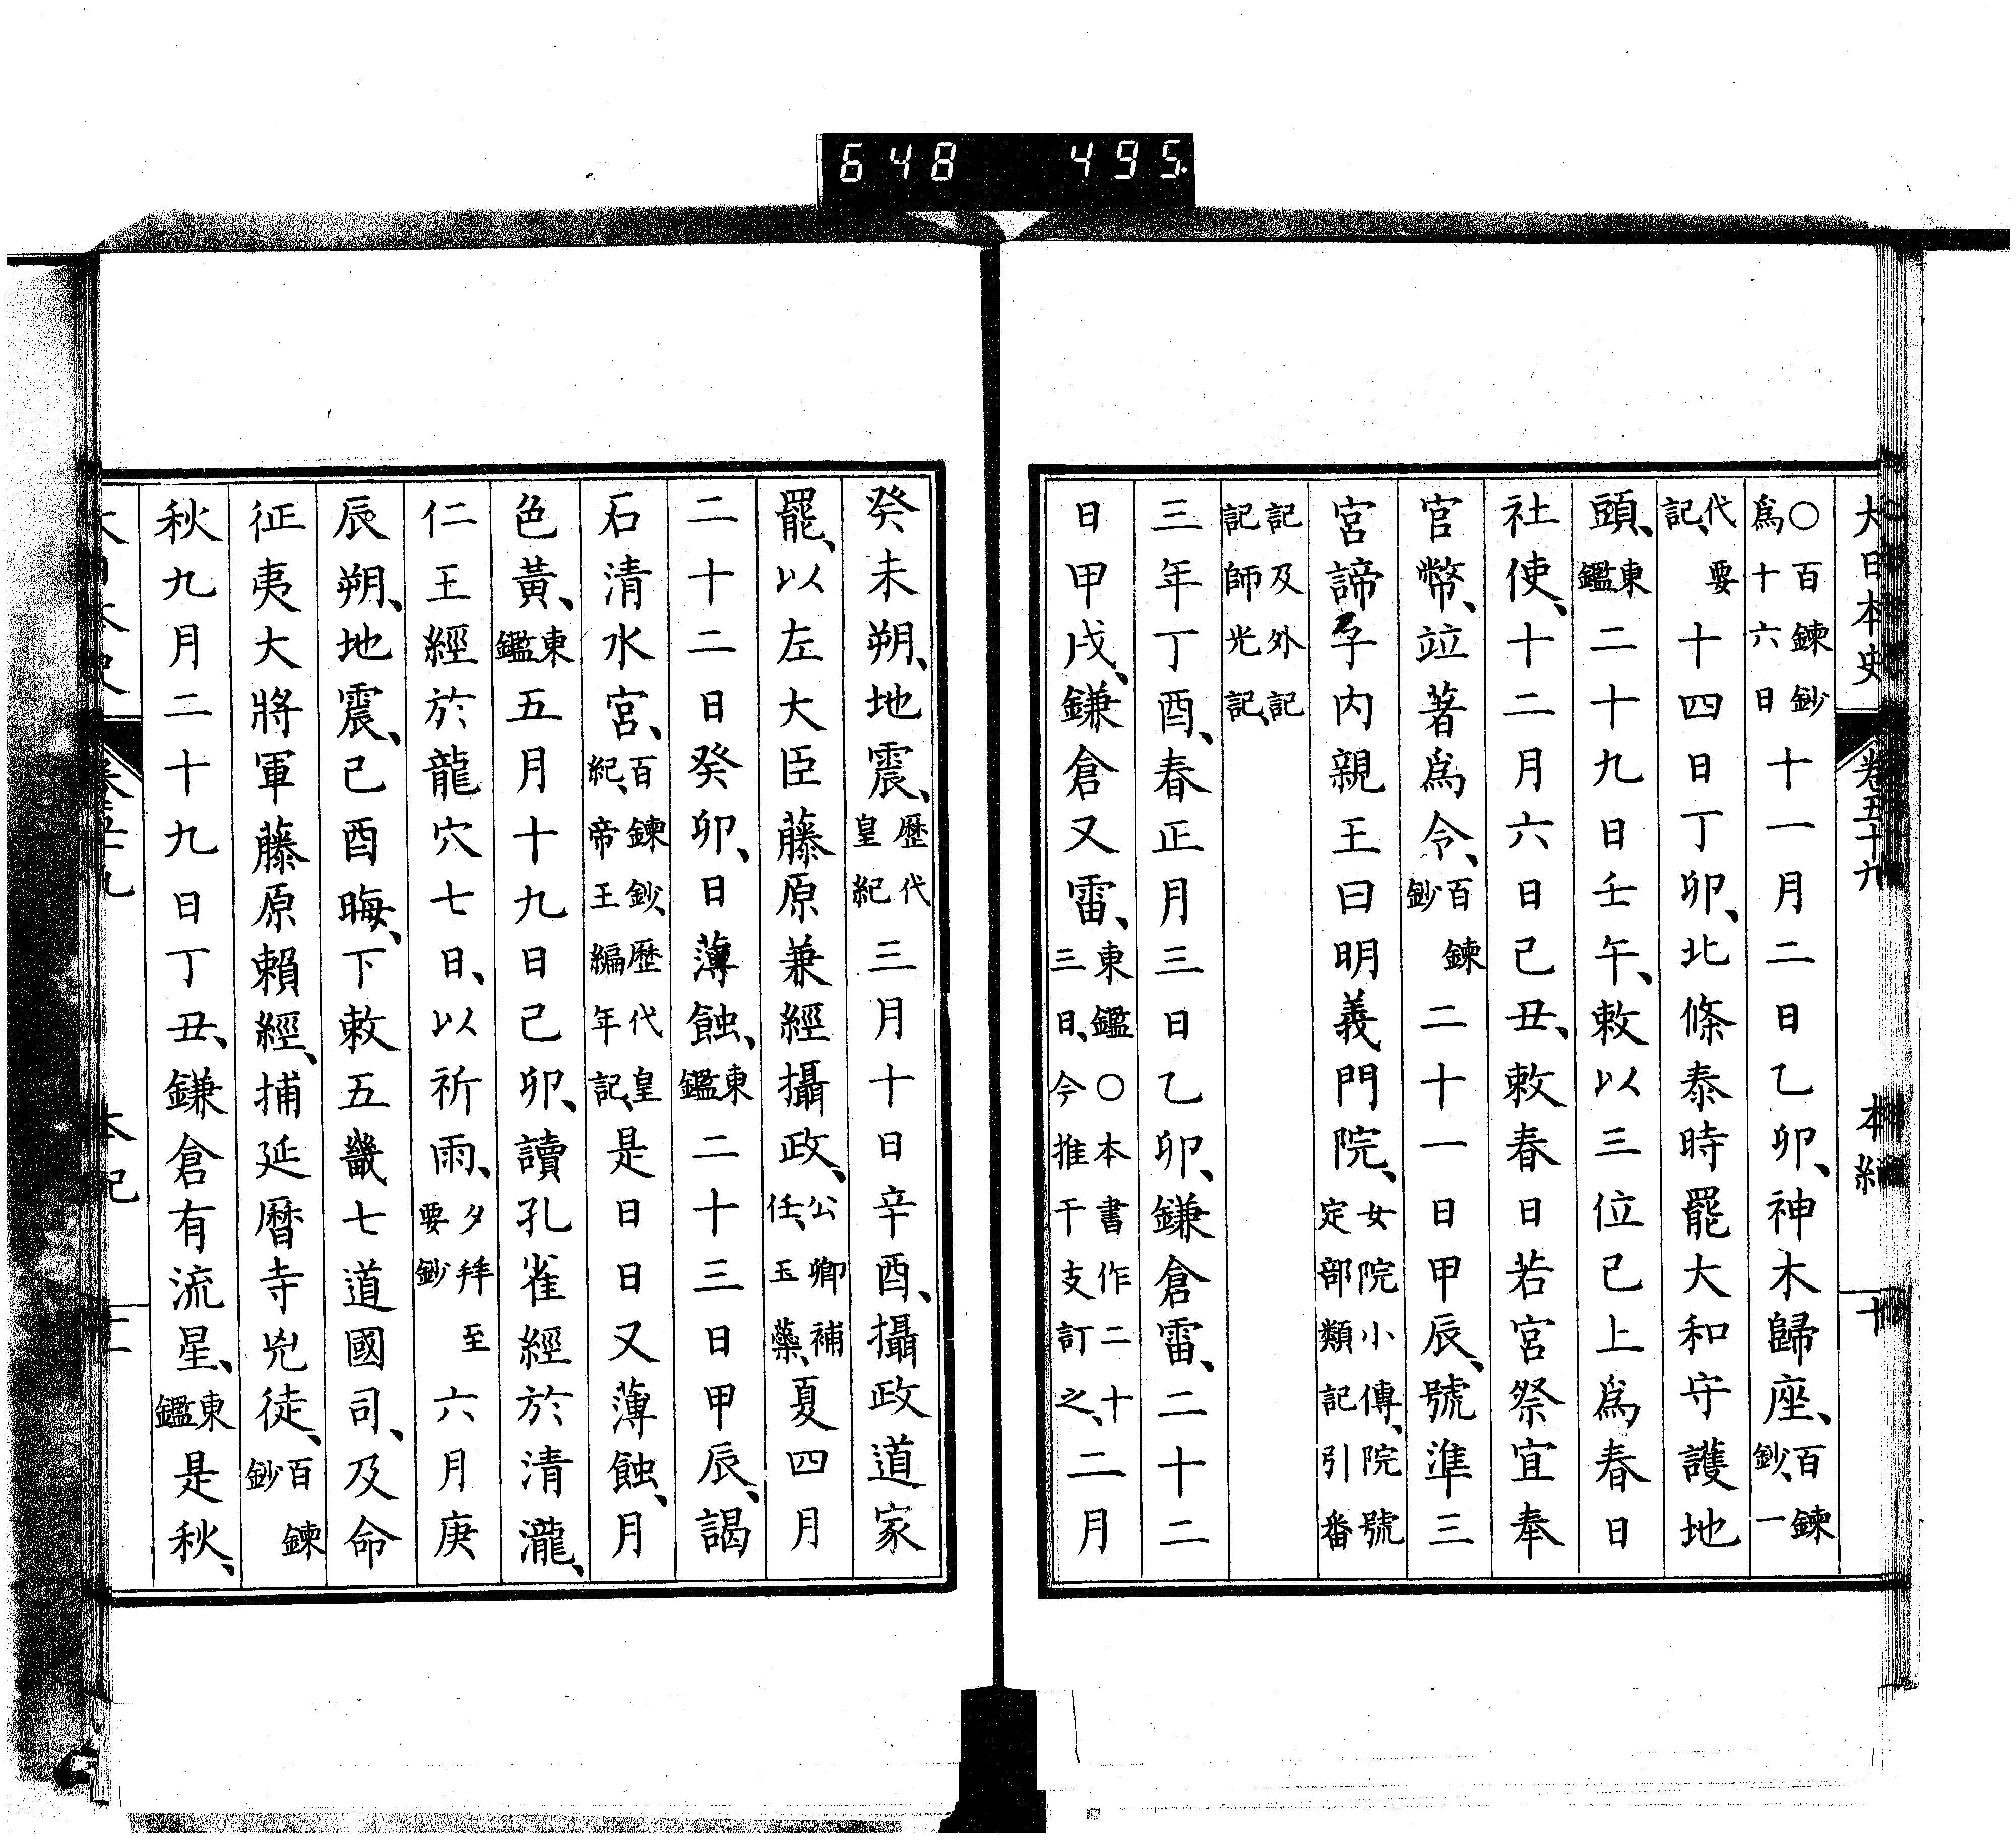 648 495
大日本史 卷五十九 本紀 十
○百鍊鈔爲十六日十一月二日乙卯、神木歸座、百鍊鈔、一
代要記、十四日丁卯、北條泰時罷大和守護地
頭、東鑑二十九日壬午、敕以三位已上爲春日
社使、十二月六日己丑、敕春日若宮祭宜奉
官幣、竝著爲令、百鍊鈔二十一日甲辰、號準三
宮諦子內親王曰明義門院、女院小傳、院號定部類記引番
記及外記記師光記、
三年丁酉、春正月三日乙卯、鎌倉雷、二十二
日甲戌、鎌倉又雷、東鑑○本書作二十三日、今推干支訂之、二月
癸未朔、地震、歷代皇紀三月十日辛酉、攝政道家
罷、以左大臣藤原兼經攝政、公卿補任、玉蘂、夏四月
二十二日癸卯、日薄蝕、東鑑二十三日甲辰、謁
石清水宮、百鍊鈔、歷代皇紀、帝王編年記、是日日又薄蝕、月
色黃、東鑑五月十九日己卯、讀孔雀經於清瀧、
仁王經於龍穴七日、以祈雨、夕拜至要鈔六月庚
辰朔、地震、己酉晦、下敕五畿七道國司、及命
征夷大將軍藤原賴經、捕延曆寺兇徒、百鍊鈔
秋九月二十九日丁丑、鎌倉有流星、東鑑是秋、
大日本史 卷五十九 本紀 十一